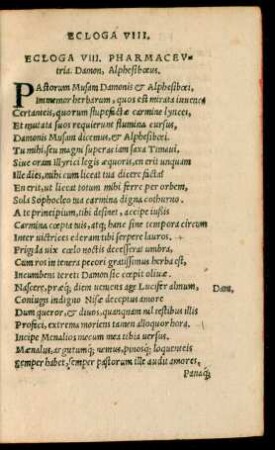 ECLOGA VIII.
ECLOGA VIII. PHARMACEV-
tria. Damon, Alphesibœus.
PAstorum Musam Damonis & Alphesibœi,
Immemor herbarum, quos est mirata iuuenca
Certanteis, quorum stupefactæ carmine lynces,
Et mutata suos requierunt flumina cursus,
Damonis Musam dicemus, & Alphesibœi.
Tu mihi, seu magni superas iam saxa Timaui,
Siue oram Illyrici legis æquoris, en erit unquam
Ille dies, mihi cum liceat tua dicere facta?
En erit, ut liceat totum mihi ferre per orbem,
Sola Sophocleo tua carmina digna cothurno.
A te principium, tibi desinet, accipe iussis
Carmina cœpta tuis, atq; hanc sine tempora circum
Inter uictrices ederam tibi serpere lauros.
Frigida uix cœlo noctis decesserat umbra,
Cum ros in tenera pecori gratissimus herba est,
Incumbens tereti Damon sic cœpit oliuæ.
Nascere, præq; diem ueniens age Lucifer almum, Dam.
Coniugis indigno Nisæ deceptus amore
Dum queror, & diuos, quanquam nil testibus illis
Profeci, extrema moriens tamen alloquor hora.
Incipe Mænalios mecum mea tibia uersus.
Mænalus, argutumq; nemus, pinosq; loquenteis
Semper habet, semper pastorum ille audit amores,
Panaq;